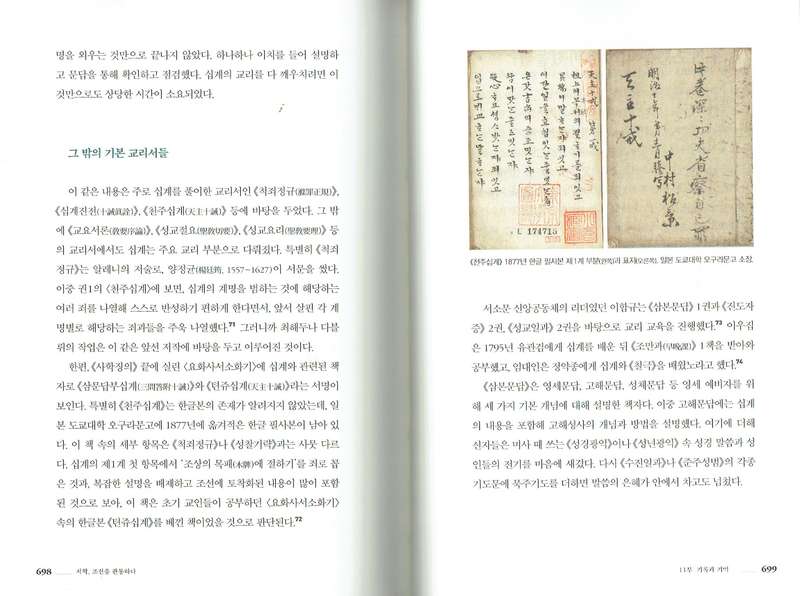 명을 외우는 것만으로 끝나지 않았다. 하나하나 이치를 들어 설명하
고 문답을 통해 확인하고 점검했다. 십계의 교리를 다 깨우치려면 이
것만으로도 상당한 시간이 소요되었다.
그 밖의 기본 교리서들
이 같은 내용은 주로 십계를 풀이한 교리서인 《척죄정규(滌罪正規)》,
《십계진전(十誡眞詮)》, 《천주십계(天主十誡)》 등에 바탕을 두었다. 그 밖
에 《교요서론(敎要序論)》, 《성교절요(聖敎切要)》, 《성교요리(聖敎要理)》 등
의 교리서에서도 십계는 주요 교리 부분으로 다뤄졌다. 특별히 《척죄
정규》는 알레니의 저술로, 양정균(楊廷筠, 1557~1627)이 서문을 썼다.
이중 권1의 〈천주십계〉에 보면, 십계의 계명을 범하는 것에 해당하는
여러 죄를 나열해 스스로 반성하기 편하게 한다면서, 앞서 살핀 각 계
명별로 해당하는 죄과들을 주욱 나열했다.71 그러니까 최해두나 다블
뤼의 작업은 이 같은 앞선 저작에 바탕을 두고 이루어진 것이다.
한편, 《사학징의》 끝에 실린 〈요화사서소화기〉에 십계와 관련된 책
자로 《삼문답부십계(三問答附十誡)》와 《텬쥬십계(天主十誡)》라는 서명이
보인다. 특별히 《천주십계》는 한글본의 존재가 알려지지 않았는데, 일
본 도쿄대학 오구라문고에 1877년에 옮겨적은 한글 필사본이 남아 있
다. 이 책 속의 세부 항목은 《척죄정규》나 《성찰기략》과는 사뭇 다르
다. 십계의 제1계 첫 항목에서 '조상의 목패(木牌)에 절하기'를 죄로 꼽
은 것과, 복잡한 설명을 배제하고 조선에 토착화된 내용이 많이 포함
된 것으로 보아, 이 책은 초기 교인들이 공부하던 〈요화사서소화기〉
속의 한글본 《텬쥬십계》를 베낀 책이었을 것으로 판단된다.72
698 서학, 조선을 관통하다
天主十誡
明治十年
中村
L 174715
《천주십계》 1877년 한글 필사본 제1계 부분(왼쪽)과 표지(오른쪽). 일본 도쿄대학 오구라문고 소장.
서소문 신앙공동체의 리더였던 이합규는 《삼본문답》 1권과 《진도자
증》 2권, 《성교일과》 2권을 바탕으로 교리 교육을 진행했다.73 이우집
은 1795년 유관검에게 십계를 배운 뒤 《조만과(早晩課)》 1책을 받아와
공부했고, 임대인은 정약종에게 십계와 《칠극》을 배웠노라고 했다.74
《삼본문답》은 영세문답, 고해문답, 성체문답 등 영세 예비자를 위
해 세 가지 기본 개념에 대해 설명한 책자다. 이중 고해문답에는 십계
의 내용을 포함해 고해성사의 개념과 방법을 설명했다. 여기에 더해
신자들은 미사 때 쓰는 《성경광익》이나 《성년광익》 속 성경 말씀과 성
인들의 전기를 마음에 새겼다. 다시 《수진일과》나 《준주성범》의 각종
기도문에 묵주기도를 더하면 말씀의 은혜가 안에서 차고도 넘쳤다.
11부 기록과 기억 699